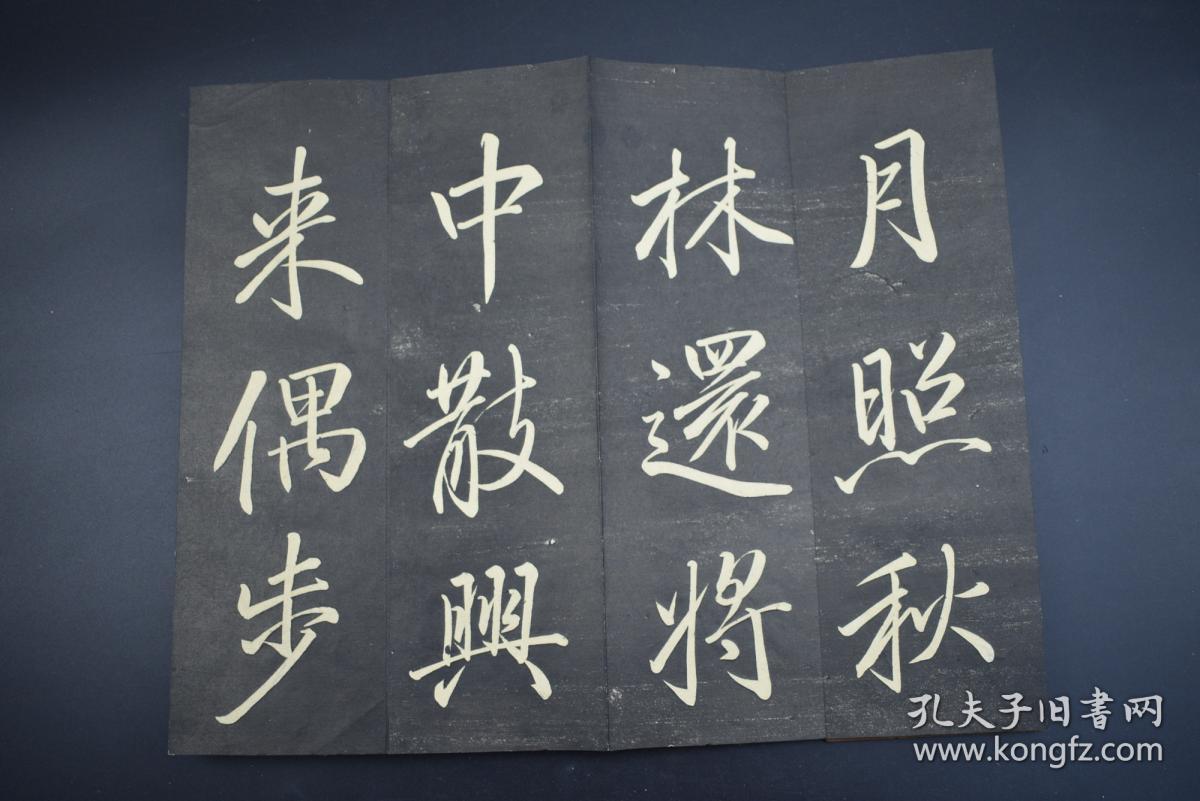 月照秋
林還將
中散興
来偶步
孔夫子旧書网
www.kongfz.com